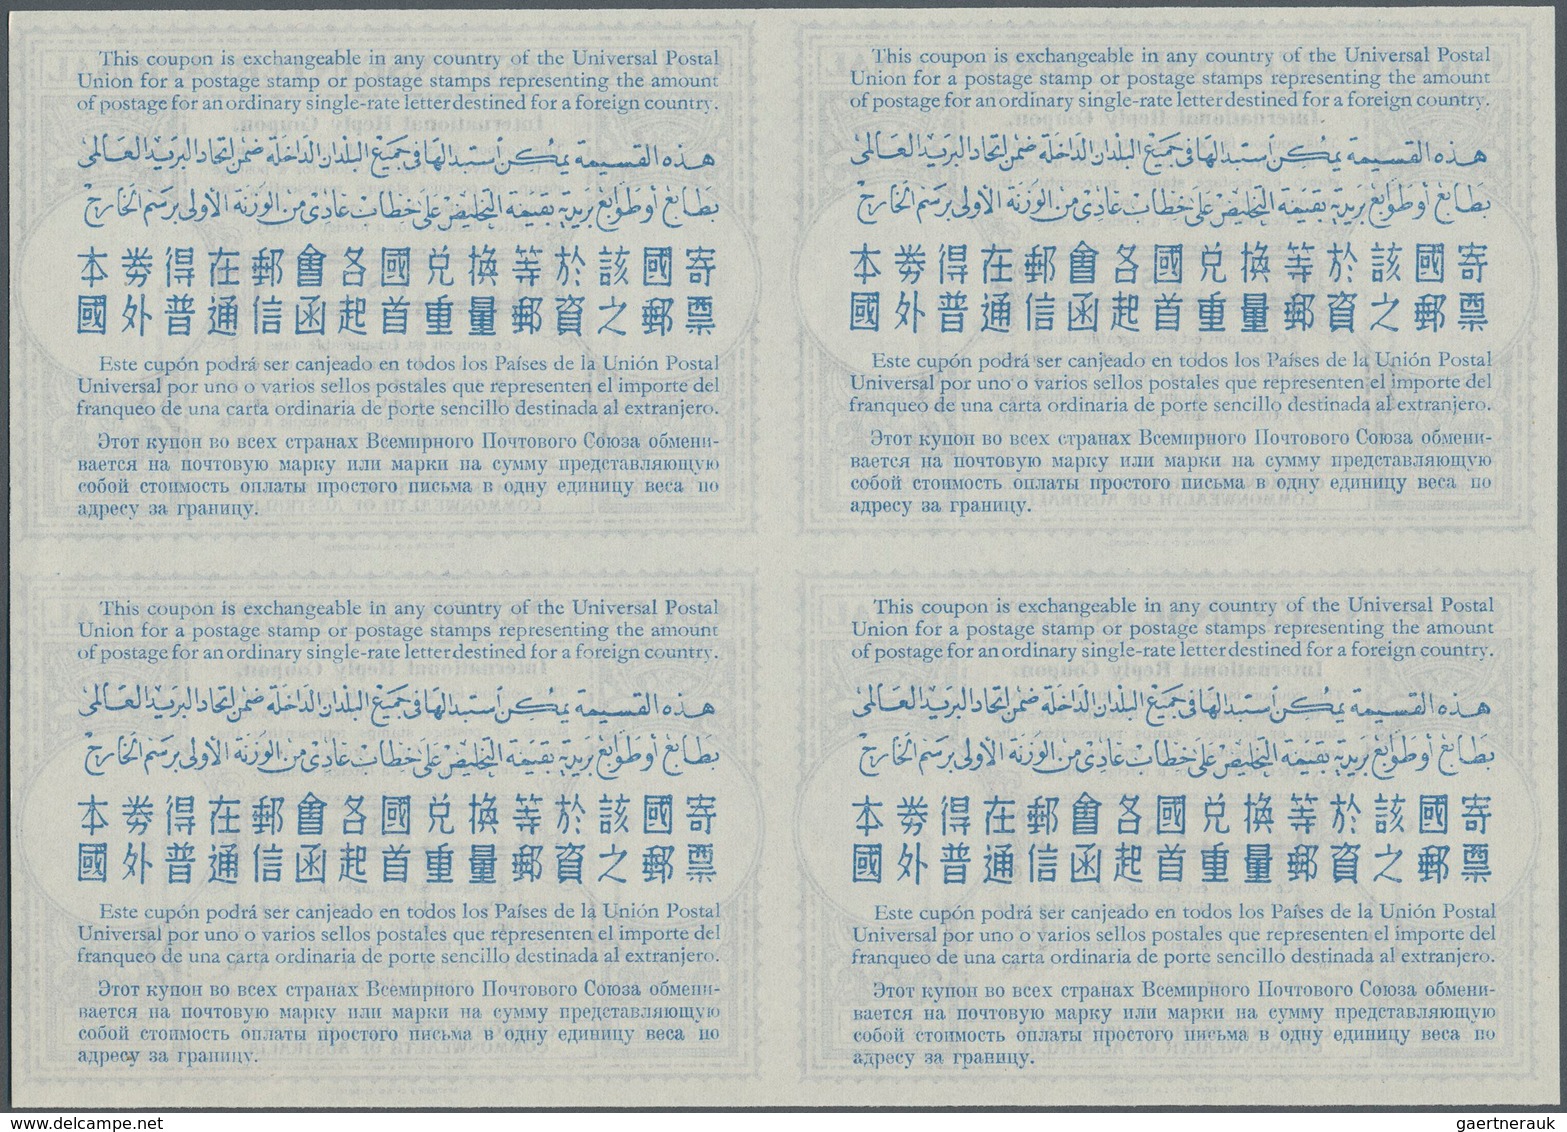 This coupon is exchangeable in any country of the Universal Postal
Union for a postage stamp or postage stamps representing the amount
of postage for an ordinary single-rate letter destined for a foreign country.
هذه القسيمة يمكن أستبدالها فى جميع البلدان الداخلة ضمن اتحاد البريد العالمى
بطابع أو طوابع بريدية بقيمة التخليص على خطاب عادى من الوزنة الأولى برسم الخارج
本券得在郵會各國兌換等於該國寄
國外普通信函起首重量郵資之郵票
Este cupón podrá ser canjeado en todos los Países de la Unión Postal
Universal por uno o varios sellos postales que representen el importe del
franqueo de una carta ordinaria de porte sencillo destinada al extranjero.
Этот купон во всех странах Всемирного Почтового Союза обмени-
вается на почтовую марку или марки на сумму представляющую
собой стоимость оплаты простого письма в одну единицу веса по
адресу за границу.
This coupon is exchangeable in any country of the Universal Postal
Union for a postage stamp or postage stamps representing the amount
of postage for an ordinary single-rate letter destined for a foreign country.
هذه القسيمة يمكن أستبدالها فى جميع البلدان الداخلة ضمن اتحاد البريد العالمى
بطابع أو طوابع بريدية بقيمة التخليص على خطاب عادى من الوزنة الأولى برسم الخارج
本券得在郵會各國兌換等於該國寄
國外普通信函起首重量郵資之郵票
Este cupón podrá ser canjeado en todos los Países de la Unión Postal
Universal por uno o varios sellos postales que representen el importe del
franqueo de una carta ordinaria de porte sencillo destinada al extranjero.
Этот купон во всех странах Всемирного Почтового Союза обмени-
вается на почтовую марку или марки на сумму представляющую
собой стоимость оплаты простого письма в одну единицу веса по
адресу за границу.
This coupon is exchangeable in any country of the Universal Postal
Union for a postage stamp or postage stamps representing the amount
of postage for an ordinary single-rate letter destined for a foreign country.
هذه القسيمة يمكن أستبدالها فى جميع البلدان الداخلة ضمن اتحاد البريد العالمى
بطابع أو طوابع بريدية بقيمة التخليص على خطاب عادى من الوزنة الأولى برسم الخارج
本券得在郵會各國兌換等於該國寄
國外普通信函起首重量郵資之郵票
Este cupón podrá ser canjeado en todos los Países de la Unión Postal
Universal por uno o varios sellos postales que representen el importe del
franqueo de una carta ordinaria de porte sencillo destinada al extranjero.
Этот купон во всех странах Всемирного Почтового Союза обмени-
вается на почтовую марку или марки на сумму представляющую
собой стоимость оплаты простого письма в одну единицу веса по
адресу за границу.
This coupon is exchangeable in any country of the Universal Postal
Union for a postage stamp or postage stamps representing the amount
of postage for an ordinary single-rate letter destined for a foreign country.
هذه القسيمة يمكن أستبدالها فى جميع البلدان الداخلة ضمن اتحاد البريد العالمى
بطابع أو طوابع بريدية بقيمة التخليص على خطاب عادى من الوزنة الأولى برسم الخارج
本券得在郵會各國兌換等於該國寄
國外普通信函起首重量郵資之郵票
Este cupón podrá ser canjeado en todos los Países de la Unión Postal
Universal por uno o varios sellos postales que representen el importe del
franqueo de una carta ordinaria de porte sencillo destinada al extranjero.
Этот купон во всех странах Всемирного Почтового Союза обмени-
вается на почтовую марку или марки на сумму представляющую
собой стоимость оплаты простого письма в одну единицу веса по
адресу за границу.
www.delcampe.net
gaertnerauk